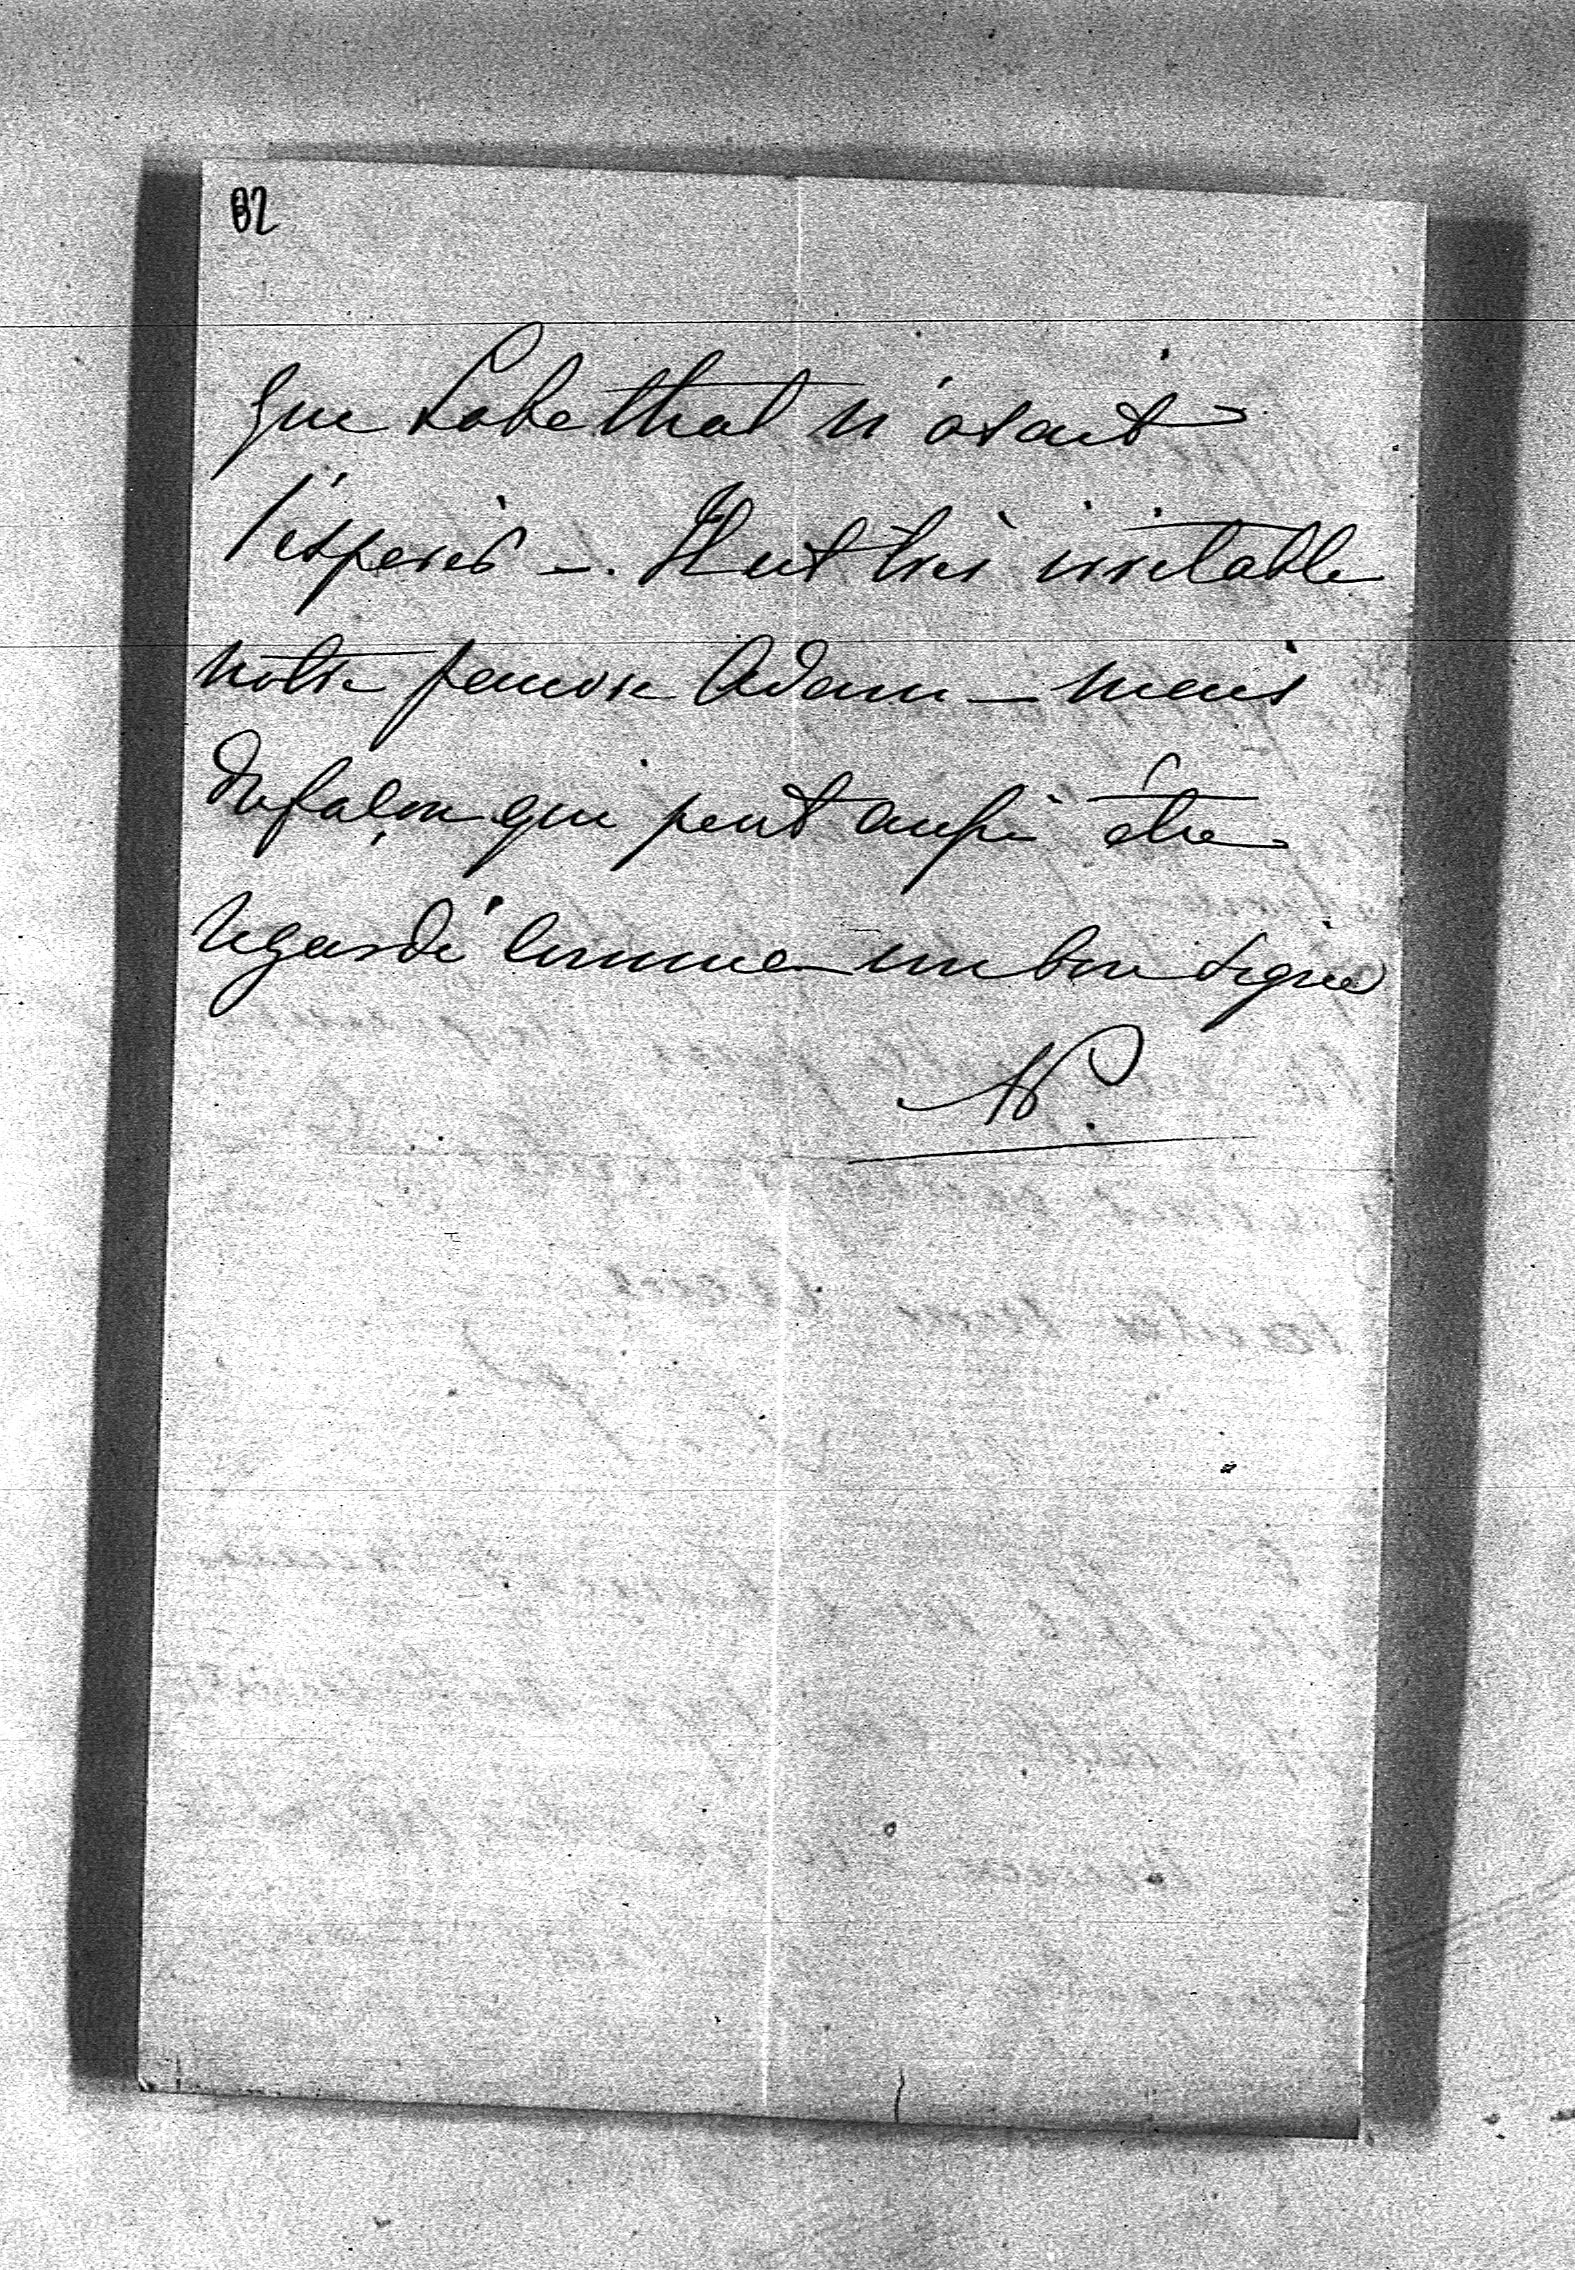 82
que Lobethal n'osait
l'espérer –. Il est très irritable
notre pauvre Adam – mais
de façon qui peut aussi être
regardé comme un bon signe
N.